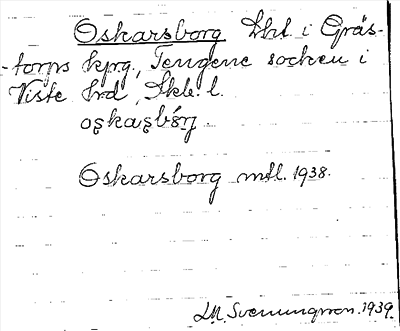 Oskarsborg Lht i Gräs-
-torps kprg, Tengene socken i
Viste hrd, Skb. l.
Oskarsborg mtl. 1938.
Svenungsson 1939.